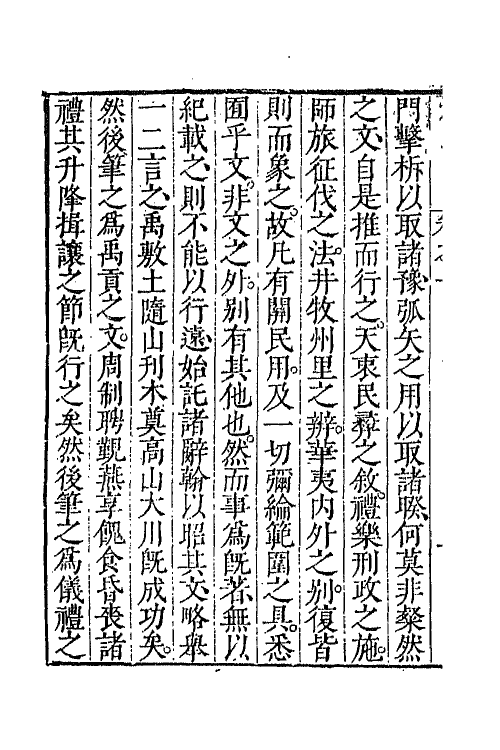 門擊柝以取諸豫弧矢之用以取諸睽何莫非粲然
之文自是推而行之天衷民彝之敘禮樂刑政之施
師旅征伐之法井牧州里之辨華夷内外之别復皆
則而象之故凡有關民用及一切彌綸範圍之具悉
囿乎文非文之外别有其他也然而事爲旣著無以
紀載之則不能以行遠始託諸辭翰以昭其文略舉
一二言之禹敷土隨山刋木奠高山大川旣成功矣
然後筆之爲禹貢之文周制聘覲燕享餽食昏喪諸
禮其升降揖讓之節旣行之矣然後筆之爲儀禮之